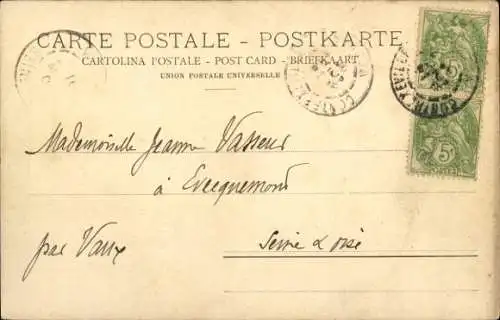 CARTE POSTALE - POSTKARTE
CARTOLINA POSTALE - POST CARD - BRIEFKAART
UNION POSTALE UNIVERSELLE
5
5
Mademoiselle Jeanne Vasseur
à Evecquemont
par Vaux
Seine & Oise